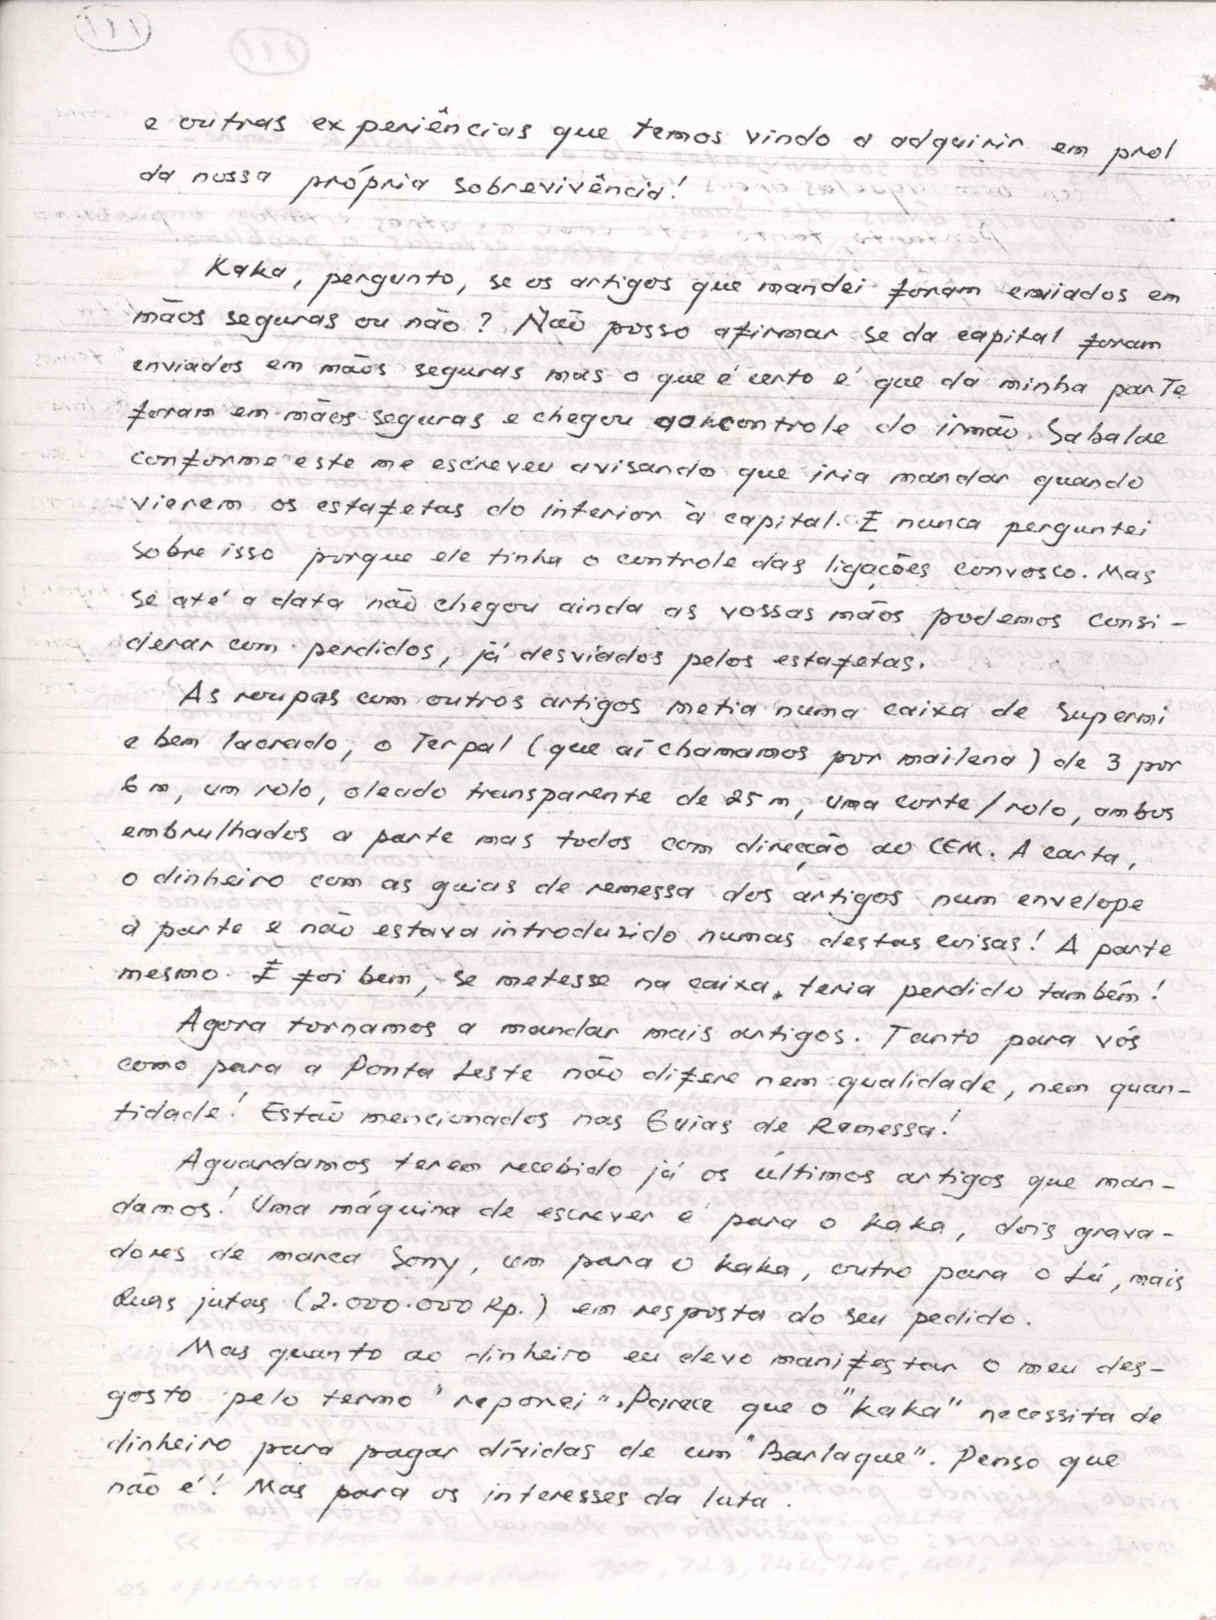 e outras experiências que temos vindo a adquirir em prol
da nossa própria sobrevivência!
Kaka, pergunto, se os artigos que mandei foram enviados em
mãos seguras ou não? Não posso afirmar se da capital foram
enviados em mãos seguras mas o que é certo é que da minha parte
foram em mãos seguras e chegou controle do irmão Sabalae
conforme este me escreveu avisando que iria mandar quando
vierem os estafetas do interior à capital. E nunca perguntei
sobre isso porque ele tinha o controle das ligações convosco. Mas
se até a data não chegou ainda as vossas mãos podemos consi-
derar com perdidos, já desviados pelos estafetas.
As roupas com outros artigos metia numa caixa de Supermi
e bem lacrado, o Terpal (que aí chamamos por mailena) de 3 por
6 m, um rolo, oleado transparente de 25 m, uma corte/rolo, ambos
embrulhados a parte mas todos com direcção ao CEM. A carta,
o dinheiro com as guias de remessa dos artigos num envelope
à parte e não estava introduzido numas destas coisas! A parte
mesmo. E foi bem, se metesse na caixa, teria perdido também!
Agora tornamos a mandar mais artigos. Tanto para vós
como para a Ponta Leste não difere nem qualidade, nem quan-
tidade! Estão mencionados nas Guias de Remessa!
Aguardamos terem recebido já os últimos artigos que man-
damos! Uma máquina de escrever é para o Kaka, dois grava-
dores de marca Sony, um para o Kaka, outro para o Lú, mais
duas jutas (2.000.000 Rp.) em resposta do seu pedido.
Mas quanto ao dinheiro eu devo manifestar o meu des-
gosto pelo termo "reporei". Parece que o "Kaka" necessita de
dinheiro para pagar dívidas de um "Barlaque". Penso que
não é! Mas para os interesses da luta.